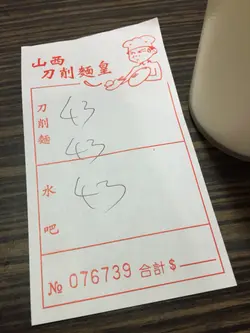 山西
刀削麵皇
刀削麵
43
43
水吧
43
№ 076739 合計 $